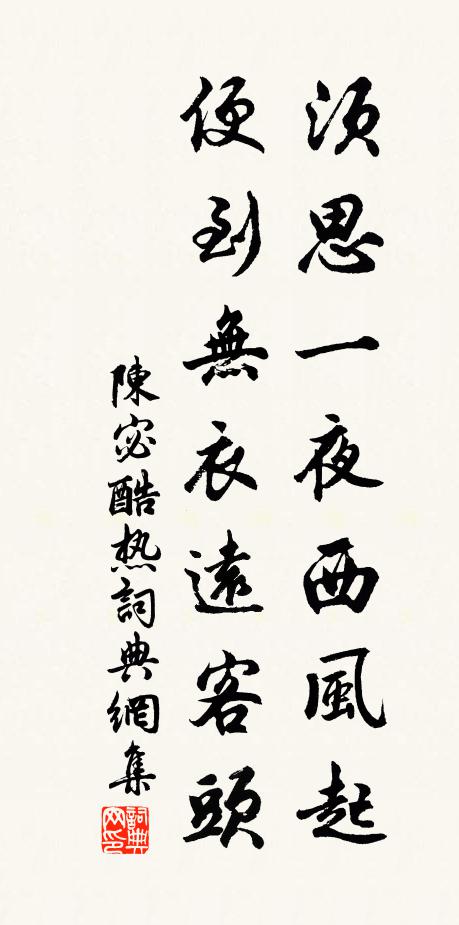 須思一夜西風起
便到無衣遠客頭
陳宓酷热詞典網集
詞典网印